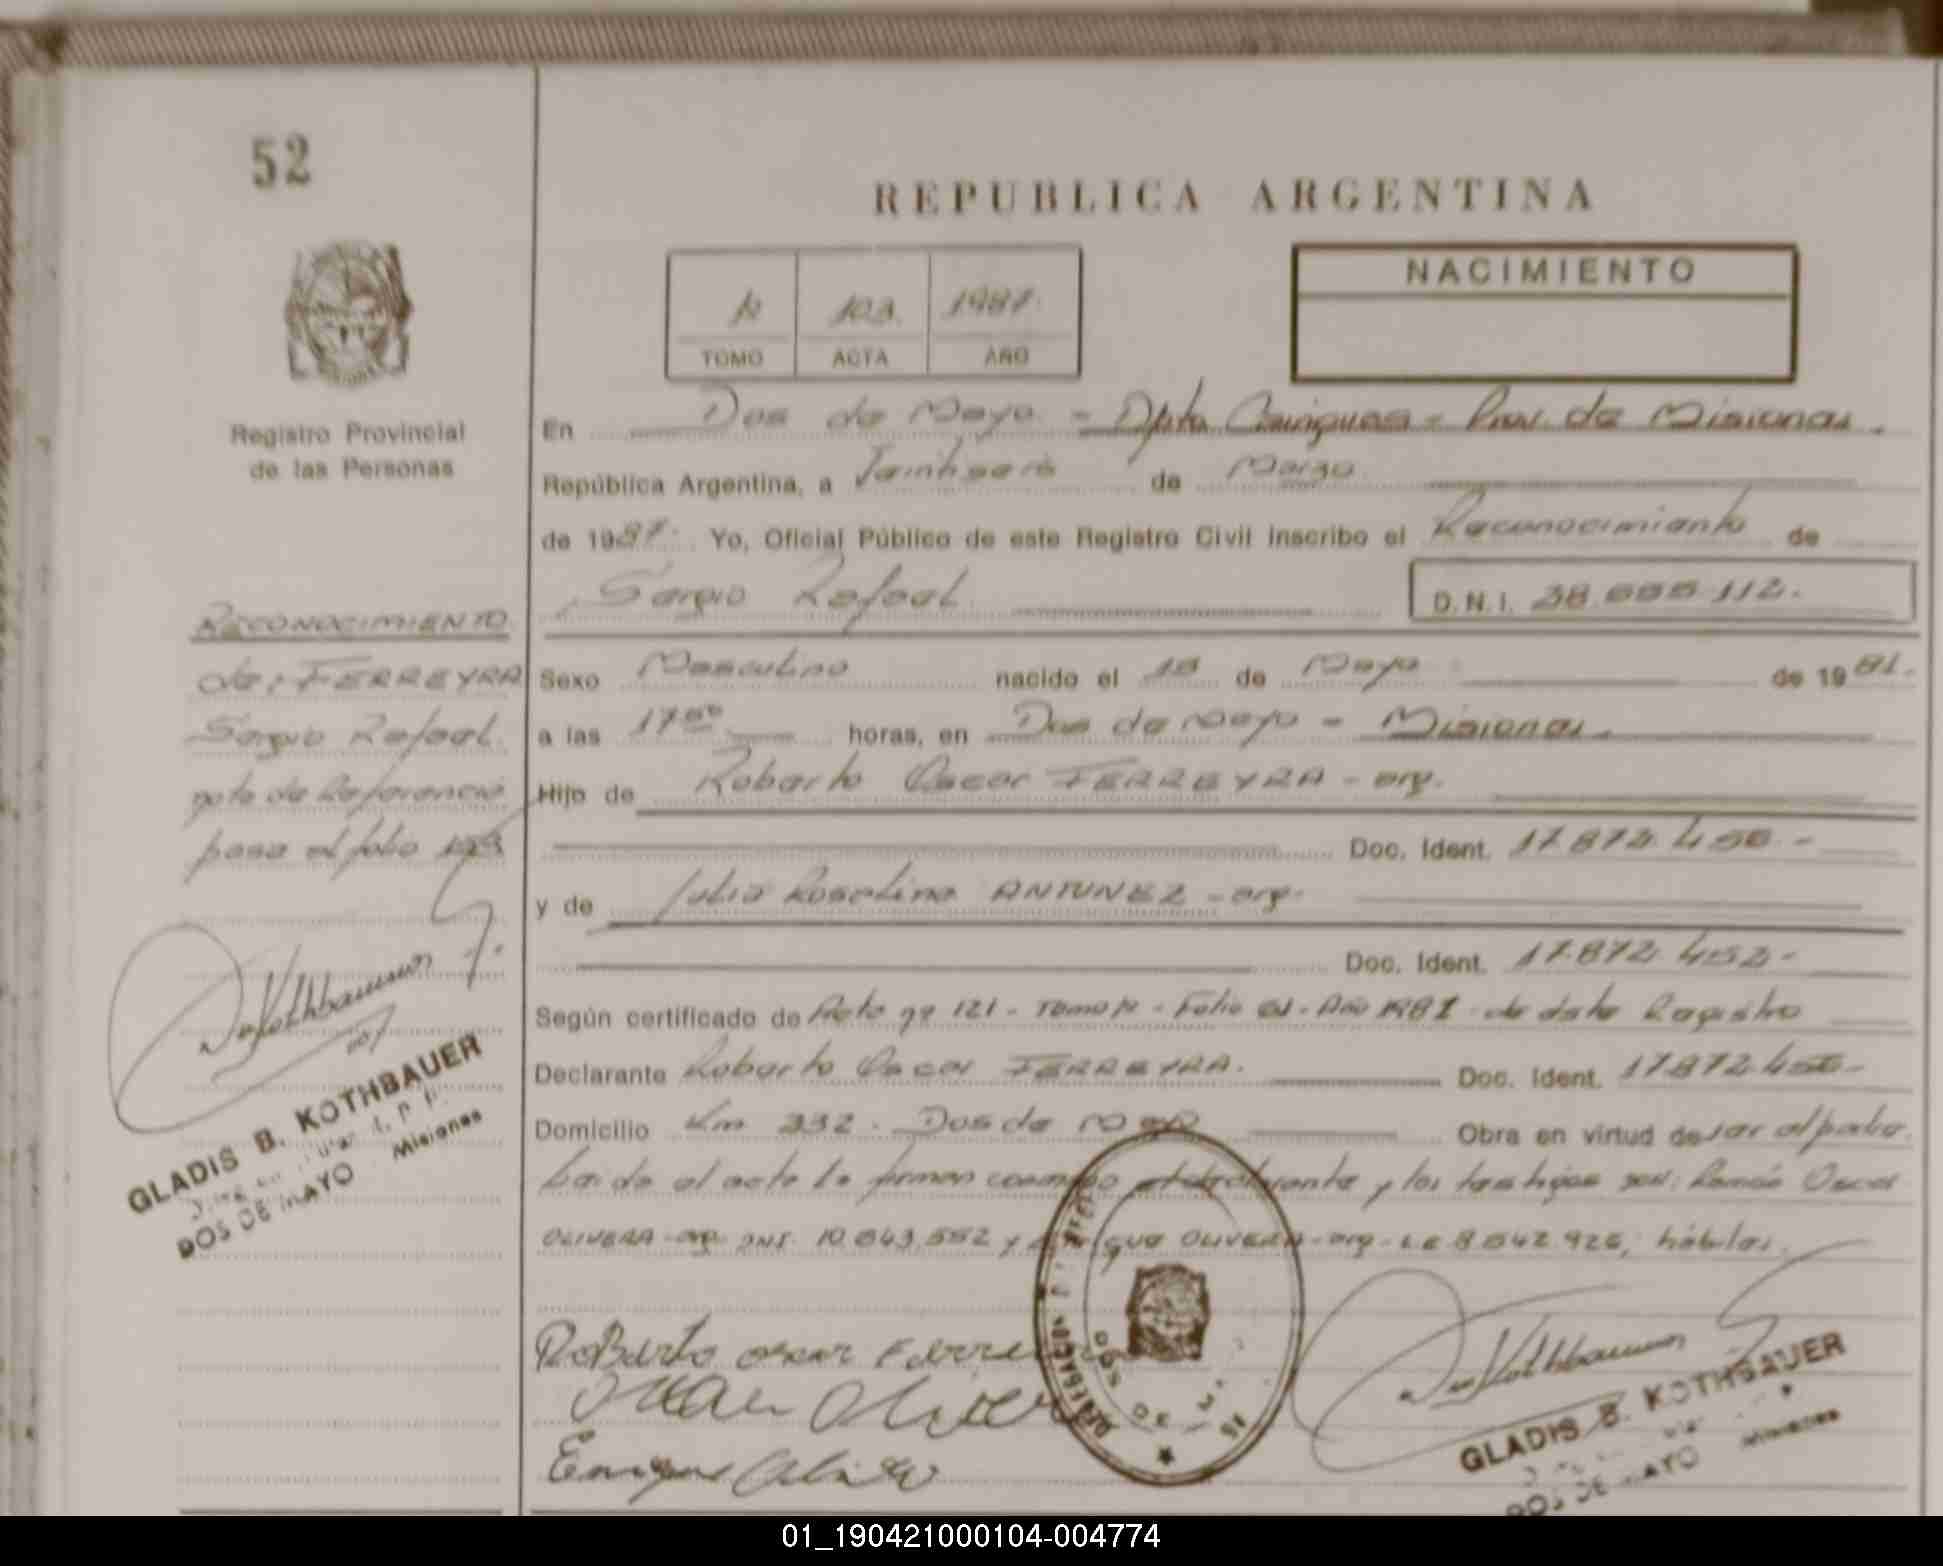 52
REPUBLICA ARGENTINA
Registro Provincial
de las Personas
103. 1987.
TOMO ACTA AÑO
NACIMIENTO
En Dos de Mayo - Dpto Cainguas - Prov. de Misiones.
República Argentina, a de Marzo
de 1987. Yo, Oficial Público de este Registro Civil inscribo el Reconocimiento de
Sergio Rafael D.N.I.
Sexo Masculino nacido el de Mayo de 1981.
a las horas, en Dos de Mayo - Misiones.
Hijo de Roberto Oscar FERREYRA - arg.
Doc. Ident.
y de Julia Rosalina ANTUNEZ - arg.
Doc. Ident. 17.872.452-
Según certificado de Acta nº 121 - Tomo - Folio - Año 1981 - de este Registro
Declarante Roberto Oscar FERREYRA. Doc. Ident.
Domicilio Km 232. Dos de Mayo Obra en virtud de ser el padre.
Leido el acta la firman conmigo el declarante y los testigos Ramón Oscar
OLIVERA - arg. DNI. 10.843.552 y OLIVERA - arg - LE hábiles.
RECONOCIMIENTO
de: FERREYRA
Sergio Rafael.
nota de Referencia
pasa al folio
Kothbauer
GLADIS B. KOTHBAUER
DOS DE MAYO Misiones
Roberto Oscar
DELEGACION
DOS DE
Kothbauer
GLADIS B. KOTHBAUER
DOS DE MAYO Misiones
01_190421000104-004774